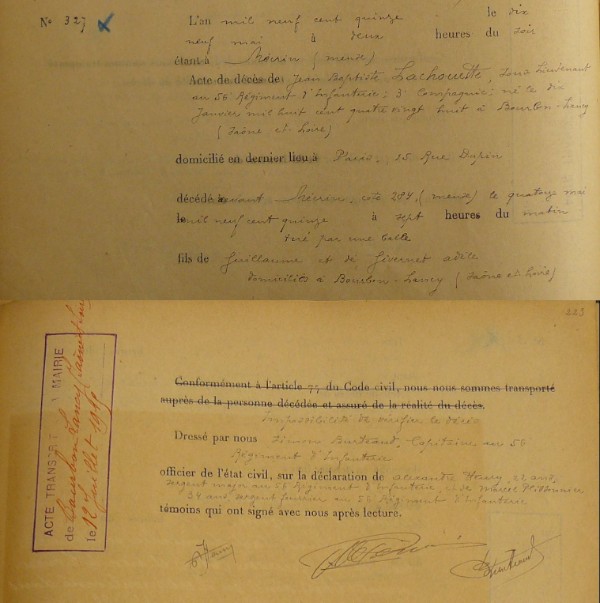 N° 327
L'an mil neuf cent quinze le dix
neuf mai à deux heures du soir
étant à Mécrin (meuse)
Acte de décès de Jean Baptiste Lachouette, Sous Lieutenant
au 56e Régiment d'Infanterie; 3e Compagnie; né le dix
Janvier mil huit cent quatre vingt huit à Bourbon-Lancy
(Saône et Loire)
domicilié en dernier lieu à Paris, 15 Rue
décédé devant Mécrin, cote 287, (meuse) le quatorze mai
le mil neuf cent quinze à sept heures du matin
tué par une balle
fils de Guillaume et de Givernet adèle
domiciliés à Bourbon-Lancy (Saône et Loire)
223
Conformément à l'article 77 du Code civil, nous nous sommes transporté
auprès de la personne décédée et assuré de la réalité du décès.
Impossibilité de vérifier le décès
Dressé par nous Simon Burtrand, Capitaine au 56
Régiment d'Infanterie
officier de l'état civil, sur la déclaration de alexandre Henry, 22 ans,
sergent major au 56 Régiment d'Infanterie et de Marcel
34 ans sergent fourrier au 56 Régiment d'Infanterie
témoins qui ont signé avec nous après lecture.
ACTE TRANSCRIT A LA MAIRIE
de Bourbon Lancy (Saône et Loire)
le 12 juillet